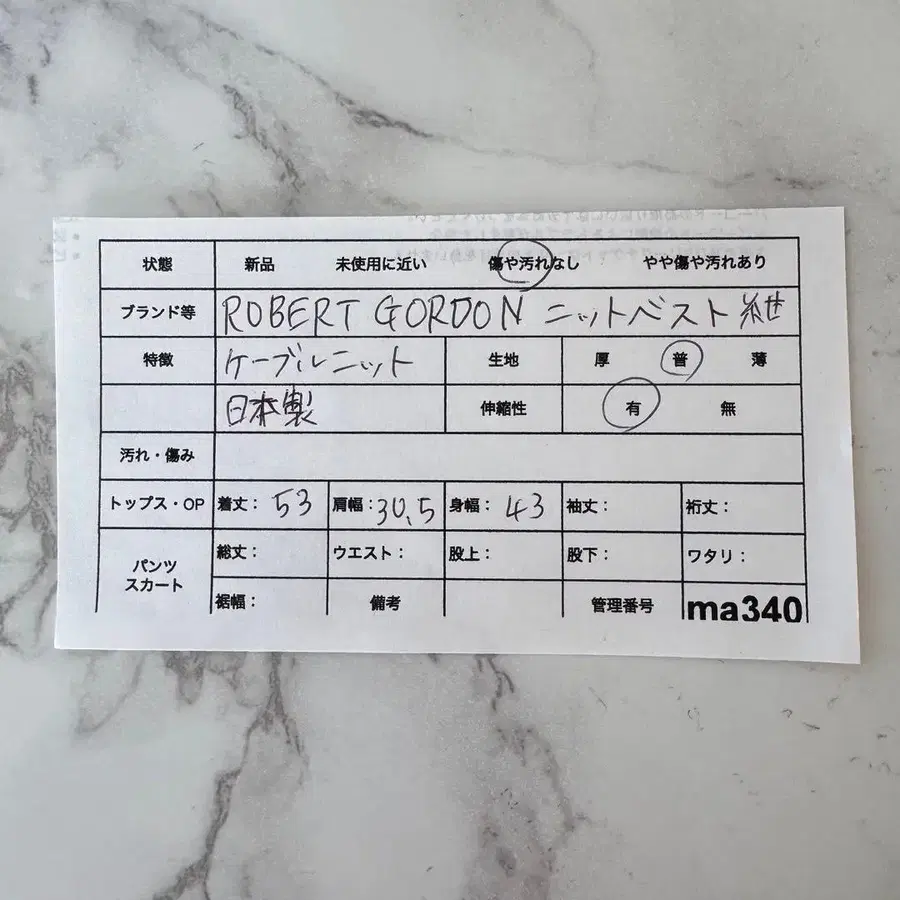 状態 新品 未使用に近い 傷や汚れなし やや傷や汚れあり
ブランド等 ROBERT GORDON ニットベスト 紺
特徴 ケーブルニット 生地 厚 普 薄
日本製 伸縮性 有 無
汚れ・傷み
トップス・OP 着丈: 53 肩幅: 30.5 身幅: 43 袖丈: 裄丈:
パンツ スカート
総丈: ウエスト: 股上: 股下: ワタリ:
裾幅: 備考 管理番号 ma340